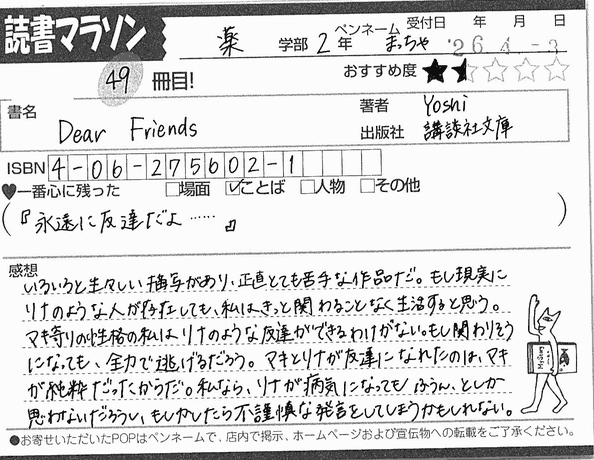 読書マラソン
薬 学部 2 年 ペンネーム まっちゃ 受付日 年 月 日 '26.4.-3
49 冊目! おすすめ度 ★
書名 Dear Friends 著者 Yoshi
出版社 講談社文庫
ISBN 4-06-275602-1
♥一番心に残った □場面 ☑ことば □人物 □その他
(『永遠に友達だよ……』)
感想
いろいろと生々しい描写があり、正直とても苦手な作品だ。もし現実に
リナのような人が存在しても、私はきっと関わることなく生活すると思う。
マキ寄りの性格の私はリナのような友達ができるわけがない。もし関わりそう
になっても、全力で逃げるだろう。マキとリナが友達になれたのは、マキ
が純粋だったからだ。私なら、リナが病気になってもふうん、としか
思わないだろうし、もしかしたら不謹慎な発言をしてしまうかもしれない。
●お寄せいただいたPOPはペンネームで、店内で掲示、ホームページおよび宣伝物への転載をご了承ください。